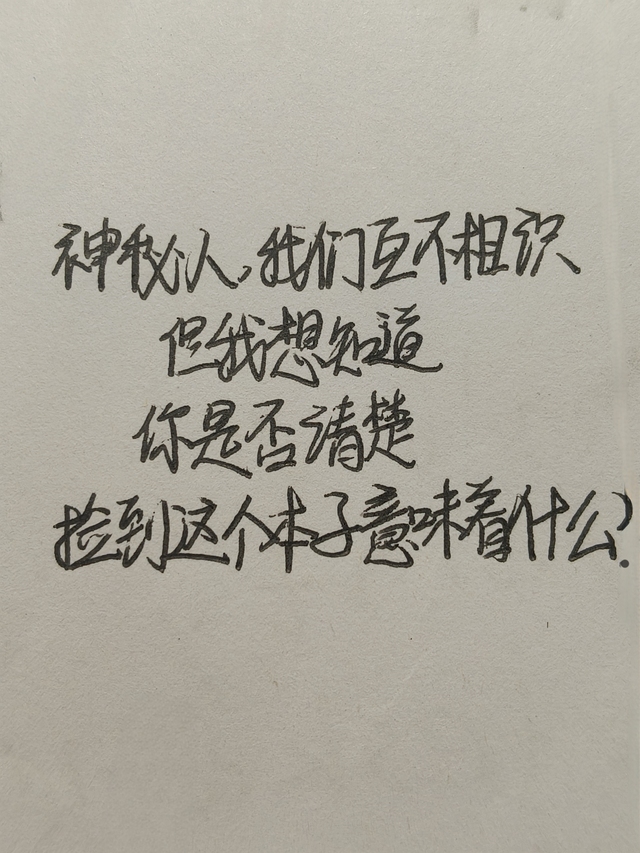 神秘人,我们互不相识
但我想知道
你是否清楚
捡到这个本子意味着什么?